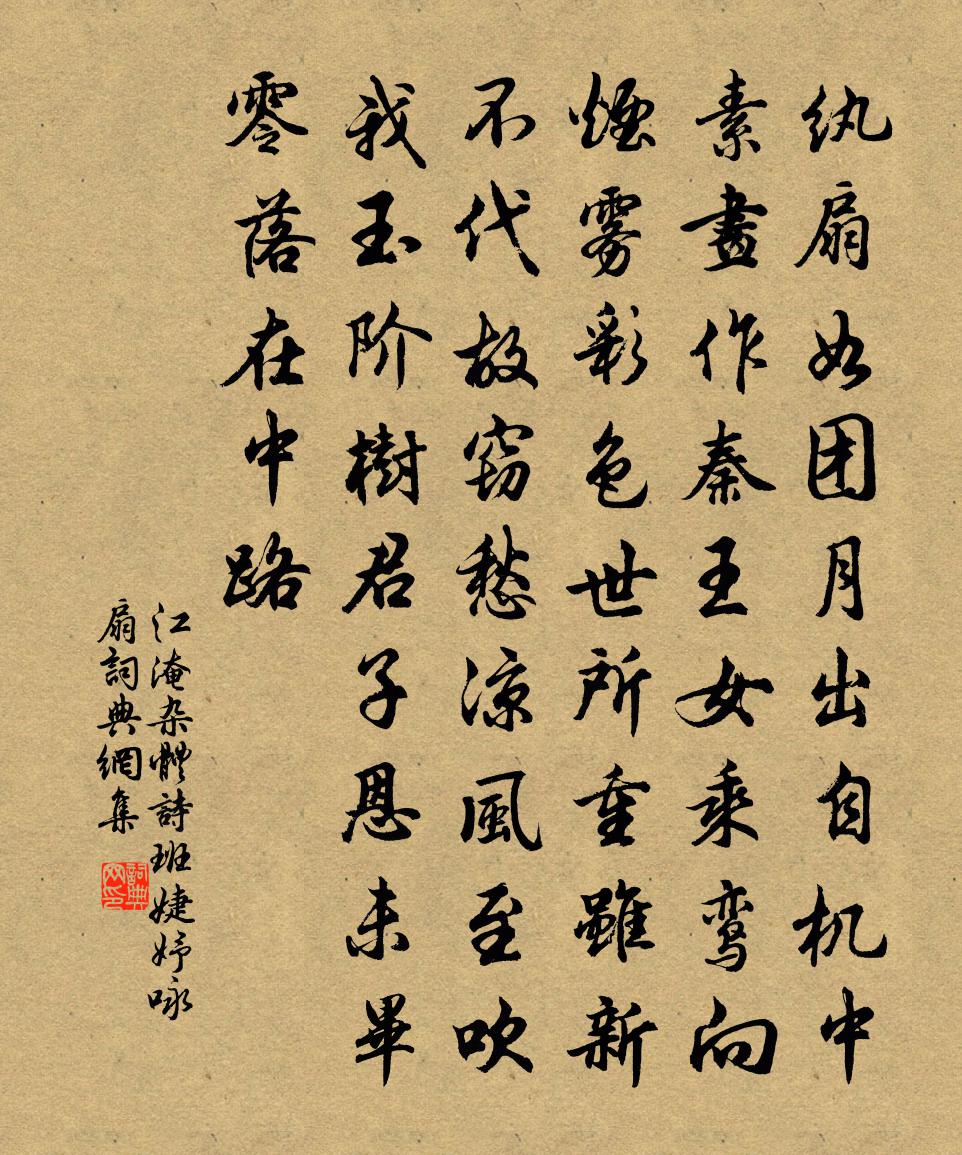 纨扇如团月出自机中
素畫作秦王女乘鸾向
煙雾彩色世所重雖新
不代故窃愁凉風至吹
我玉阶樹君子恩未畢
零落在中路
江淹杂體詩班婕妤咏
扇詞典網集
詞典网印